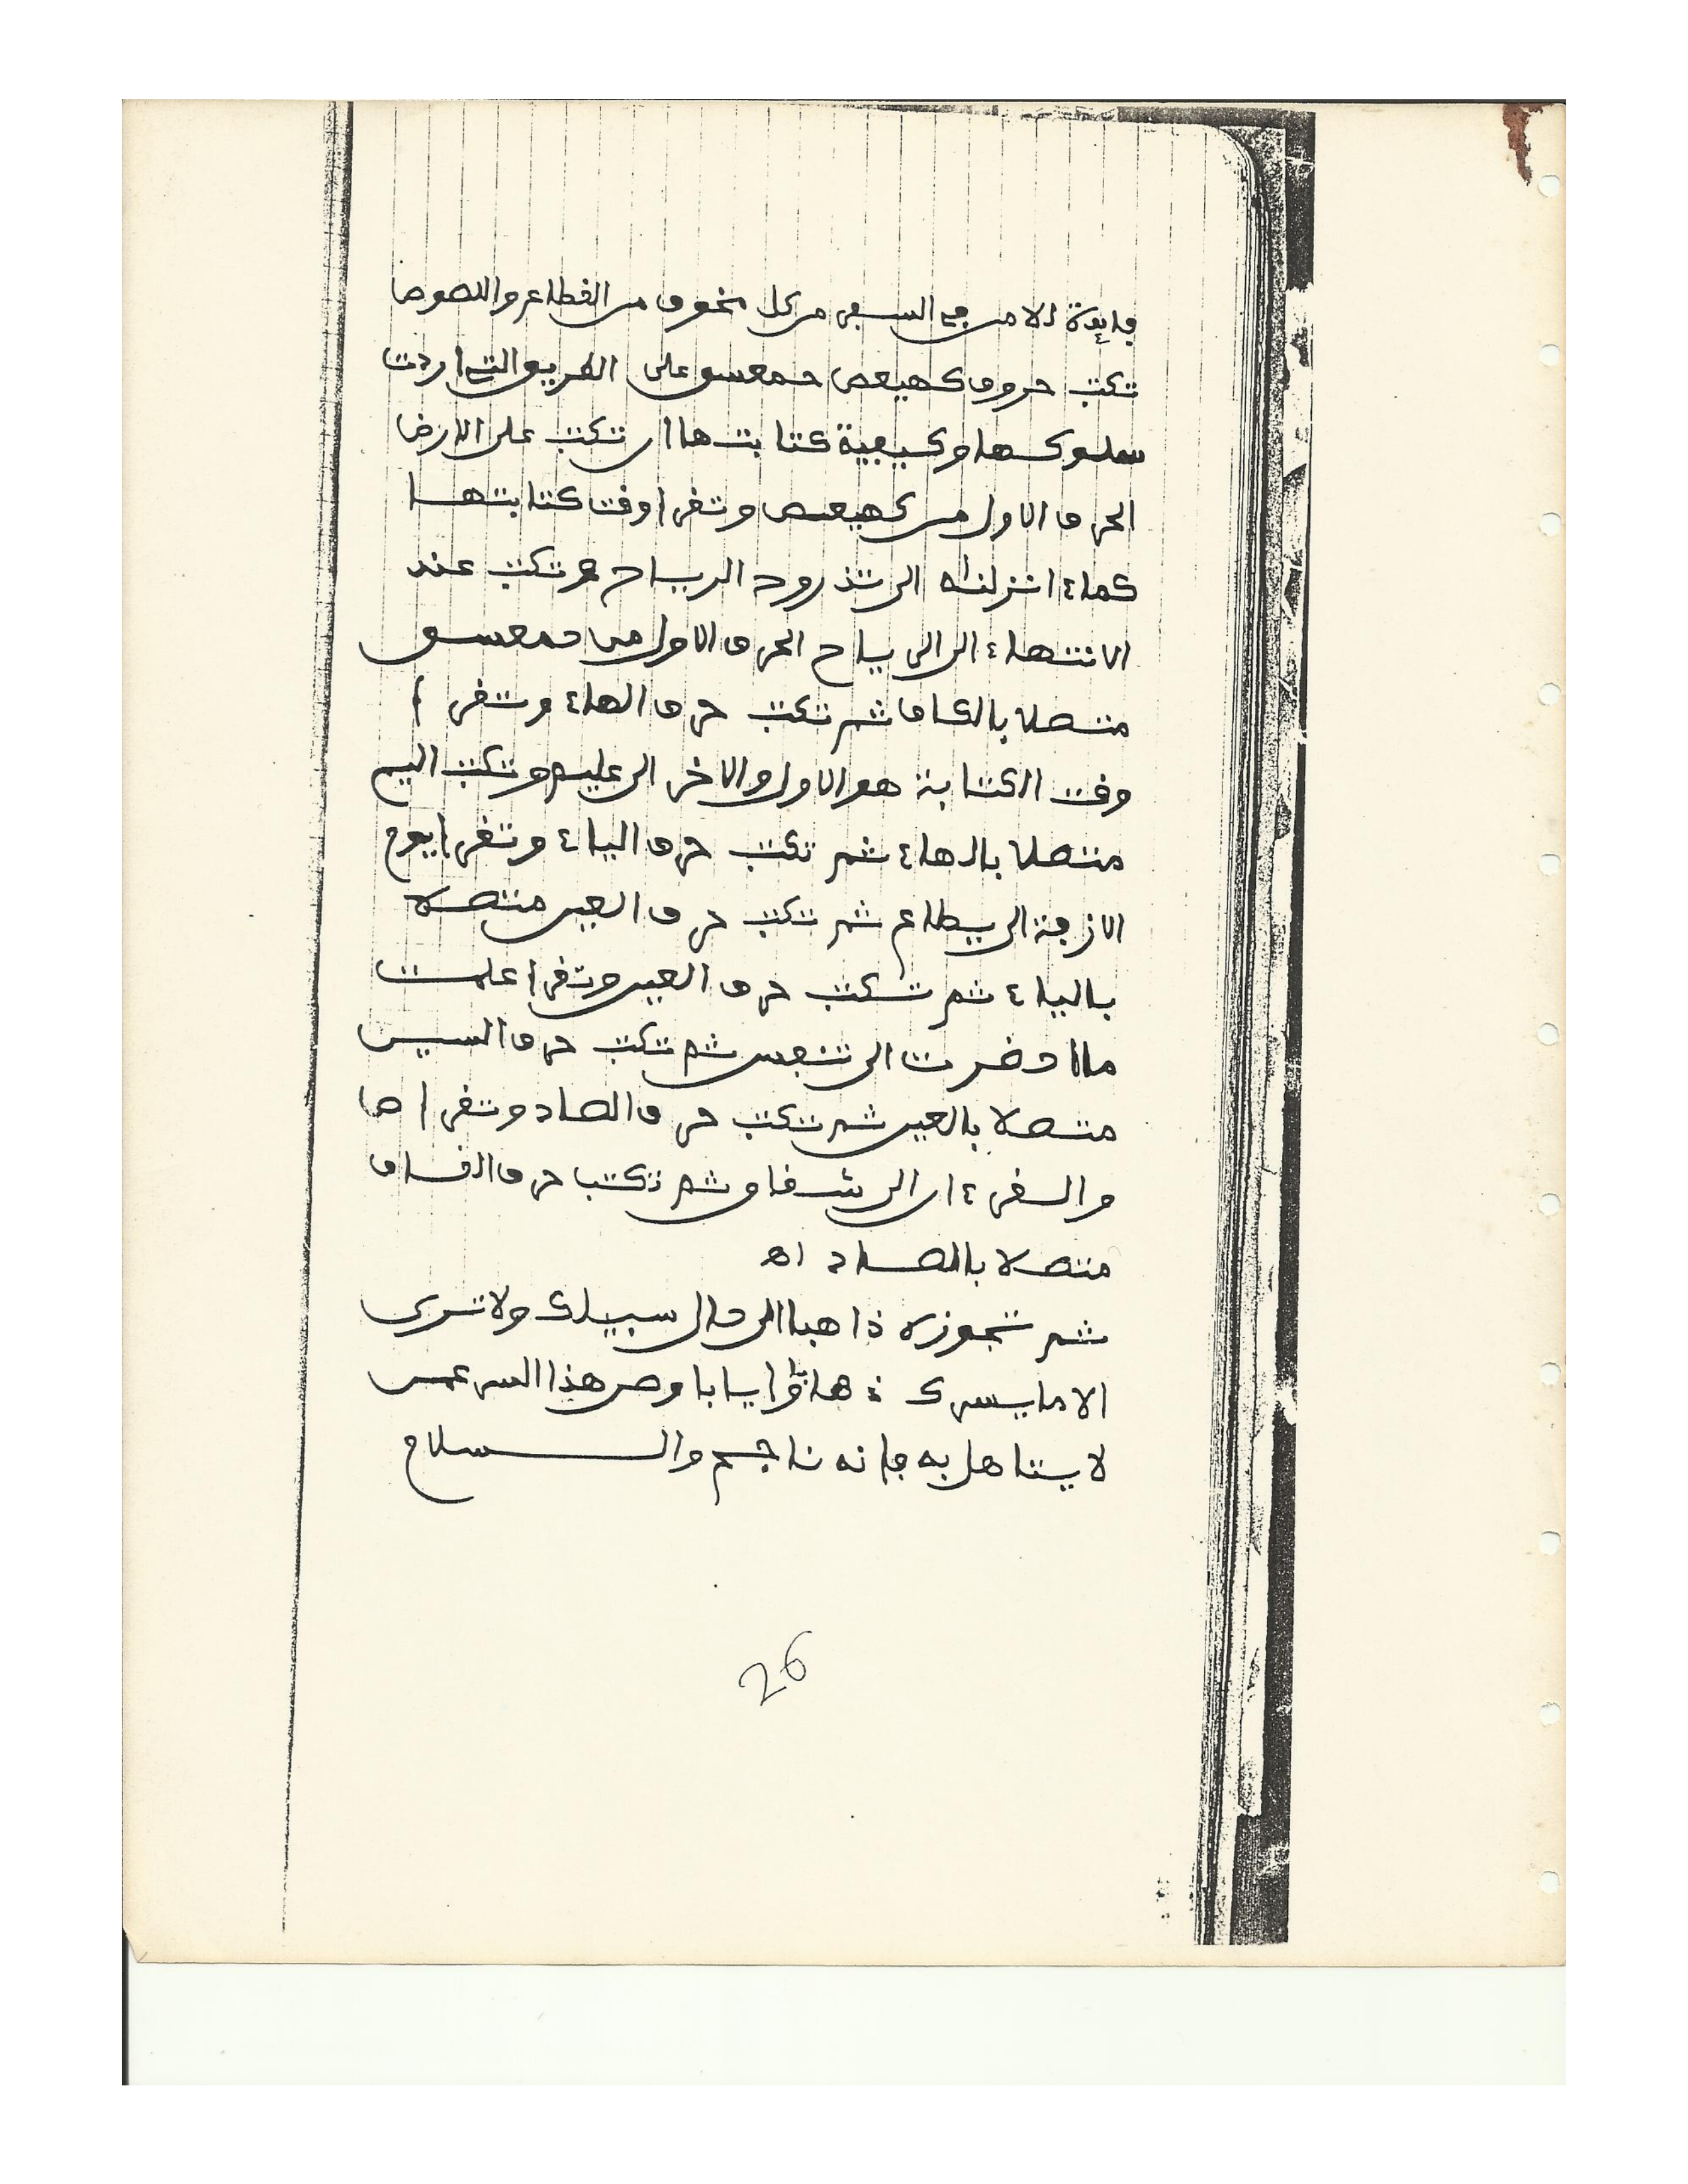 فايدة الامن في السفر من كل مخوف من القطاع واللصوص
تكتب حروف كهيعص حمعسق على الطريق التي اردت
سلوكها وكيفية كتابتها ان تكتب على الارض
الحرف الاول من كهيعص وتقرا وقت كتابتها
كماء انزلناه الى تذروه الرياح وتكتب عند
الانتهاء الى الرياح الحرف الاول من حمعسق
متصلا بالكاف ثم تكتب حرف الهاء وتقرا
وقت الكتابة هو الاول والاخر الى عليم وتكتب الميم
متصلا بالهاء ثم تكتب حرف الياء وتقرا يوم
الازفة الى يطاع ثم تكتب حرف العين متصلا
بالياء ثم تكتب حرف العين وتقرا علمت
ما احضرت الى تنفس ثم تكتب حرف السين
متصلا بالعين ثم تكتب حرف الصاد وتقرا ص
والقرءان الى شقاق ثم تكتب حرف القاف
متصلا بالصاد اه
ثم تجوزه ذاهبا الى حال سبيلك ولا ترى
الا ما يسرك ذهابا وايابا وصن هذا السر عمن
لا يستاهل به فانه ناجح والسلام
26